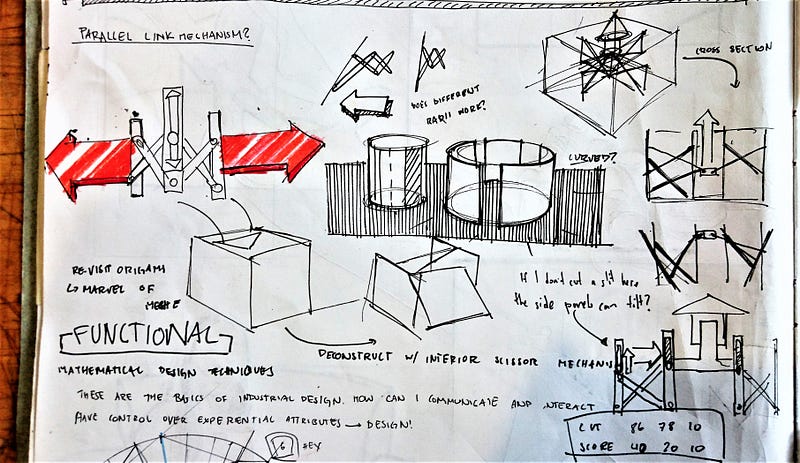 PARALLEL LINK MECHANISM?
CROSS SECTION
DIFFERENT
RADII WORK?
CURVED?
RE-VISIT ORIGAMI
↳ MARVEL OF
If I don't cut a slit here
the side panels can tilt?
FUNCTIONAL
DECONSTRUCT W/ INTERIOR SCISSOR MECHANIS
MATHEMATICAL DESIGN TECHNIQUES
THESE ARE THE BASICS OF INDUSTRIAL DESIGN. HOW CAN I COMMUNICATE AND INTERACT
HAVE CONTROL OVER EXPERIENTIAL ATTRIBUTES → DESIGN!
CUT 86 78 10
SCORE 40 20 10